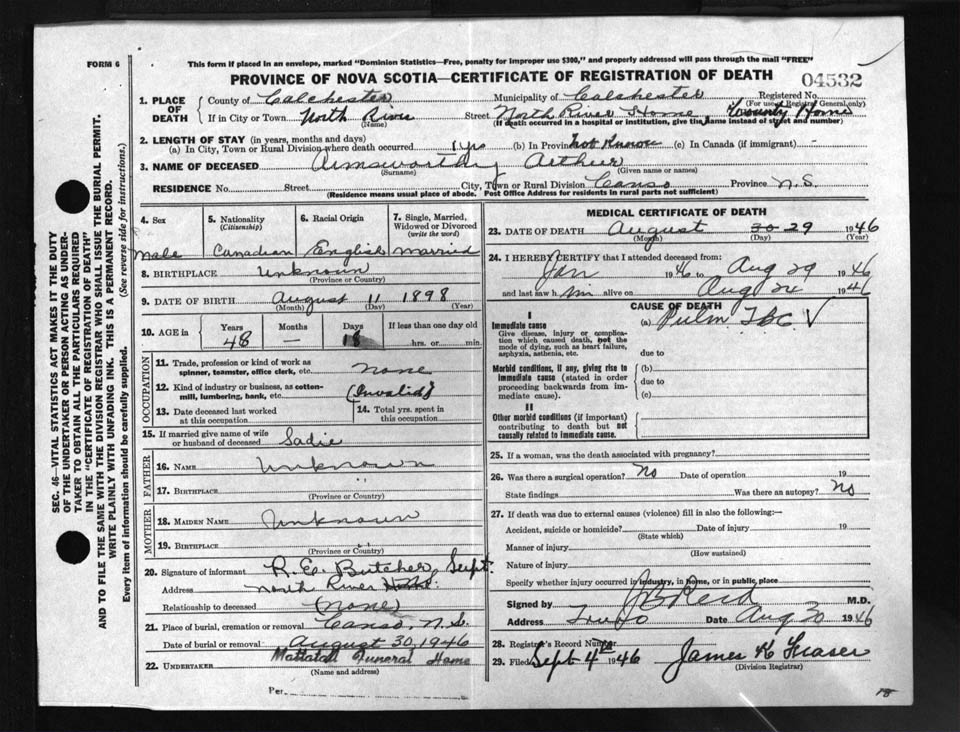 FORM 6
This form if placed in an envelope, marked "Dominion Statistics—Free, penalty for improper use $300," and properly addressed will pass through the mail "FREE"
PROVINCE OF NOVA SCOTIA—CERTIFICATE OF REGISTRATION OF DEATH 04532
1. PLACE OF DEATH
County of Colchester Municipality of Colchester Registered No.
(For use of Registrar General only)
If in City or Town North River Street North River Home, County Home
(Name) (If death occurred in a hospital or institution, give the name instead of street and number)
2. LENGTH OF STAY (in years, months and days)
(a) In City, Town or Rural Division where death occurred 1 yrs (b) In Province not known (c) In Canada (if immigrant) -
3. NAME OF DECEASED Ainsworthy Arthur
(Surname) (Given name or names)
RESIDENCE No. Street City, Town or Rural Division Canso Province N.S.
(Residence means usual place of abode. Post Office Address for residents in rural parts not sufficient)
4. Sex Male
5. Nationality (Citizenship) Canadian
6. Racial Origin English
7. Single, Married, Widowed or Divorced (write the word) married
8. BIRTHPLACE Unknown
(Province or Country)
9. DATE OF BIRTH August 11 1898
(Month) (Day) (Year)
10. AGE in Years 48 Months — Days 18 If less than one day old hrs. or min.
OCCUPATION
11. Trade, profession or kind of work as spinner, teamster, office clerk, etc. none
12. Kind of industry or business, as cotton-mill, lumbering, bank, etc. (Invalid)
13. Date deceased last worked at this occupation
14. Total yrs. spent in this occupation
15. If married give name of wife or husband of deceased Sadie
FATHER
16. NAME Unknown
17. BIRTHPLACE "
(Province or Country)
MOTHER
18. MAIDEN NAME Unknown
19. BIRTHPLACE "
(Province or Country)
20. Signature of informant R. E. Butcher, Supt.
Address North River Home.
Relationship to deceased (none)
21. Place of burial, cremation or removal Canso, N.S.
Date of burial or removal August 30, 1946
22. UNDERTAKER Mattatall Funeral Home
(Name and address)
Per
MEDICAL CERTIFICATE OF DEATH
23. DATE OF DEATH August 30 29 1946
(Month) (Day) (Year)
24. I HEREBY CERTIFY that I attended deceased from:
Jan 1946 to Aug 29 1946
and last saw him alive on Aug 24 1946
CAUSE OF DEATH
I
Immediate cause
Give disease, injury or complication which caused death, not the mode of dying, such as heart failure, asphyxia, asthenia, etc.
(a) Pulm TBC √
due to
Morbid conditions, if any, giving rise to immediate cause (stated in order proceeding backwards from immediate cause).
(b)
due to
(c)
II
Other morbid conditions (if important) contributing to death but not causally related to immediate cause.
25. If a woman, was the death associated with pregnancy?
26. Was there a surgical operation? No Date of operation 19
State findings Was there an autopsy? No
27. If death was due to external causes (violence) fill in also the following:—
Accident, suicide or homicide? Date of injury 19
(State which)
Manner of injury
(How sustained)
Nature of injury
Specify whether injury occurred in industry, in home, or in public place
Signed by J B Reid M.D.
Address Truro Date Aug 30 1946
28. Registrar's Record Number
29. Filed Sept 4th 1946 James K Fraser
(Division Registrar)
18
SEC. 46—VITAL STATISTICS ACT MAKES IT THE DUTY
OF THE UNDERTAKER OR PERSON ACTING AS UNDER-
TAKER TO OBTAIN ALL THE PARTICULARS REQUIRED
IN THE "CERTIFICATE OF REGISTRATION OF DEATH"
AND TO FILE THE SAME WITH THE DIVISION REGISTRAR WHO SHALL ISSUE THE BURIAL PERMIT.
WRITE PLAINLY WITH UNFADING INK. THIS IS A PERMANENT RECORD.
Every item of information should be carefully supplied. (See reverse side for instructions.)